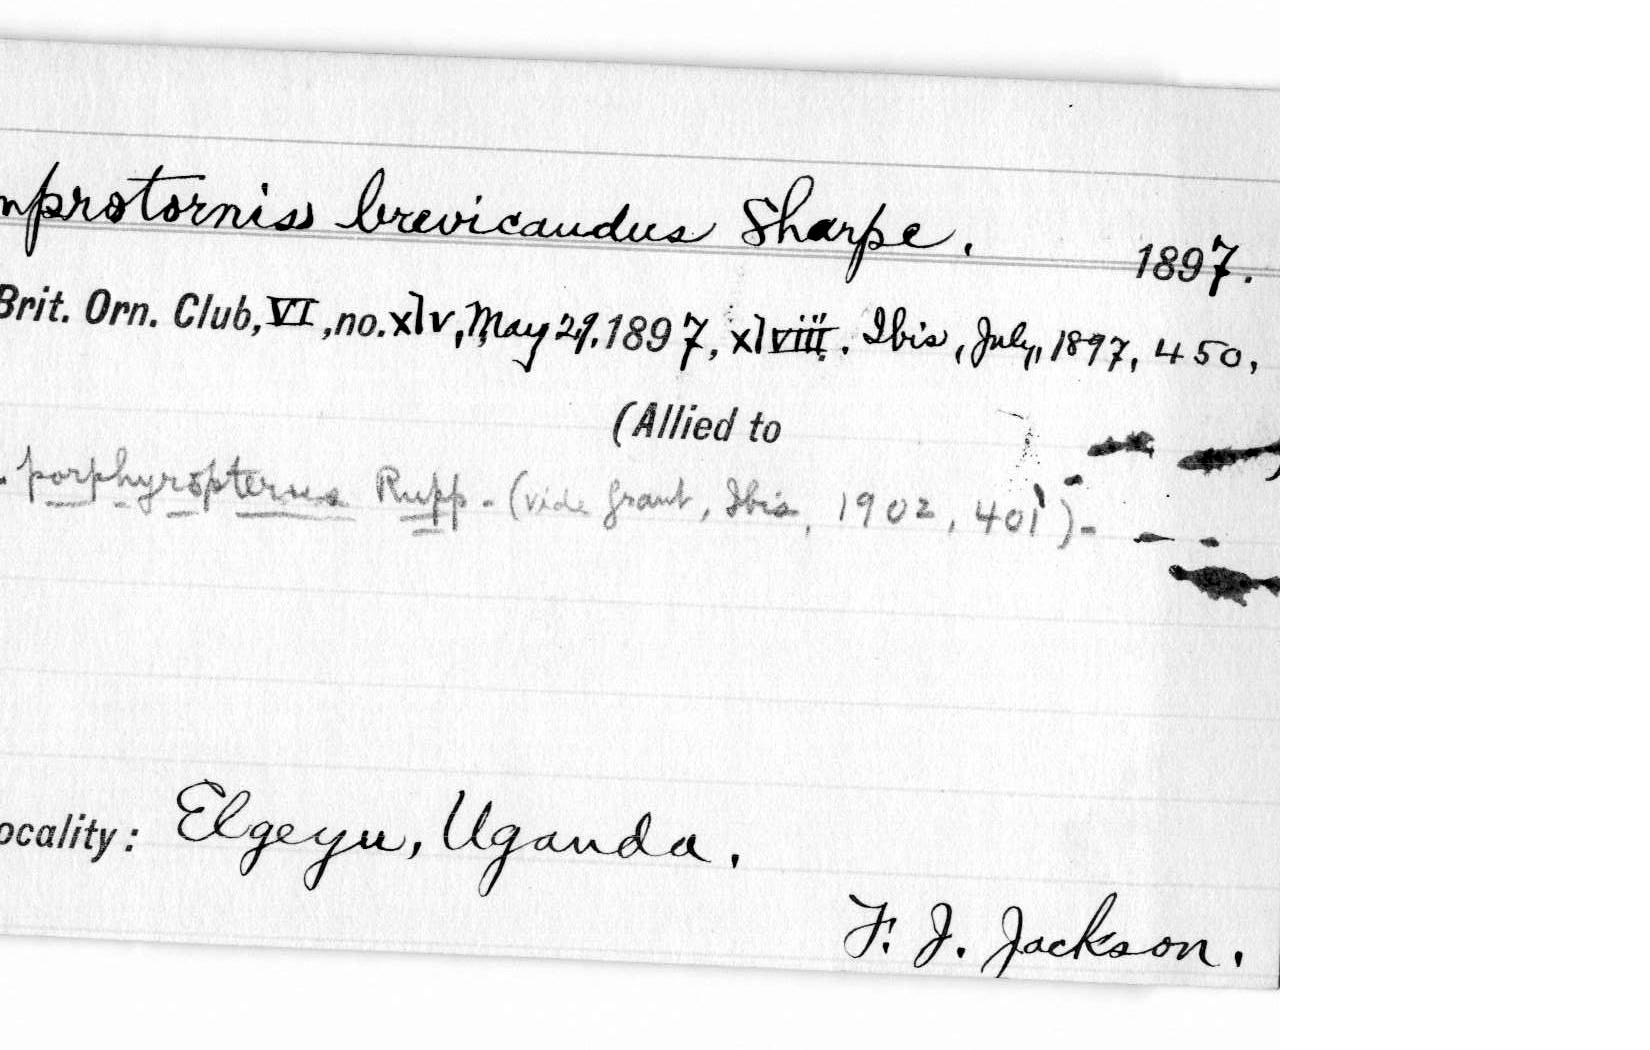 mprotornis brevicaudus Sharpe. 1897.
Brit. Orn. Club, VI, no. xlv, May 29. 1897, xlviii. Ibis, July, 1897, 450,
(Allied to
. porphyropterus Rüpp. - (vide Grant, Ibis, 1902, 401) -
ocality: Elgeyu, Uganda.
F. J. Jackson.